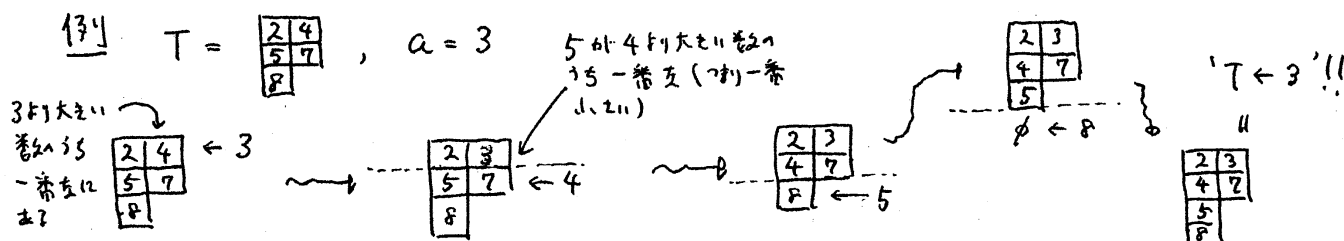 例 T = 2 4 5 7 8 , a = 3
5が4より大きい数の
うち一番左(つまり一番
小さい)
3より大きい
数のうち
一番左に
ある
2 4 ← 3
5 7
8
2 3
5 7 ← 4
8
2 3
4 7
8 ← 5
2 3
4 7
5
φ ← 8
'T ← 3'!!
"
2 3
4 7
5
8